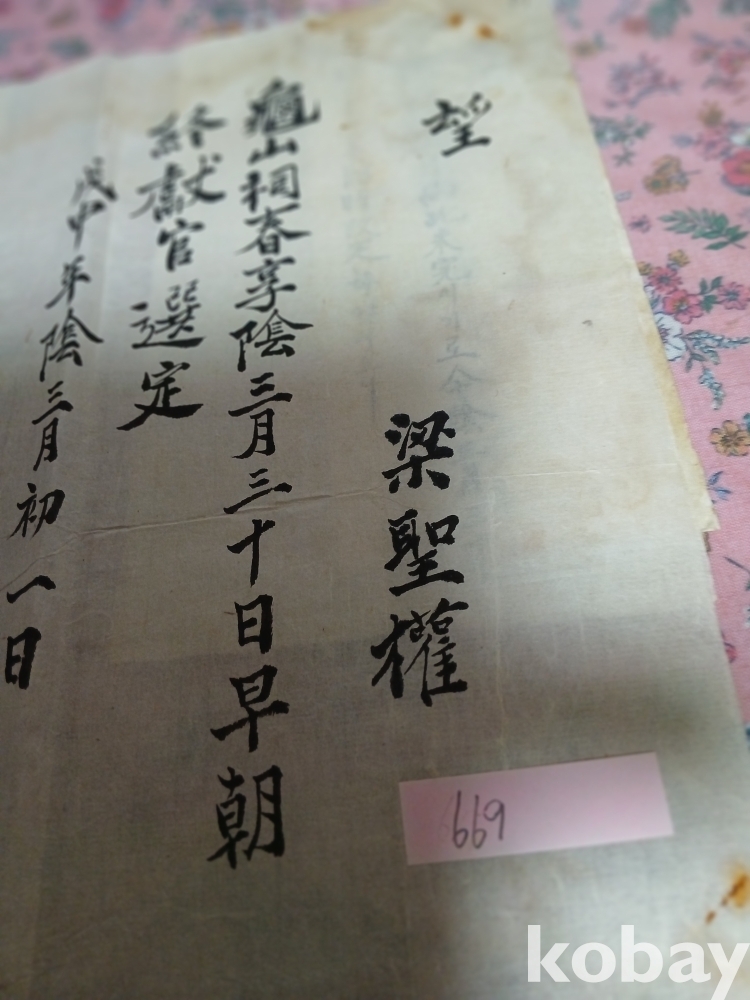 望
梁聖權
龜山祠春享陰三月三十日早朝
終獻官選定
戊申年陰三月初一日
669
kobay